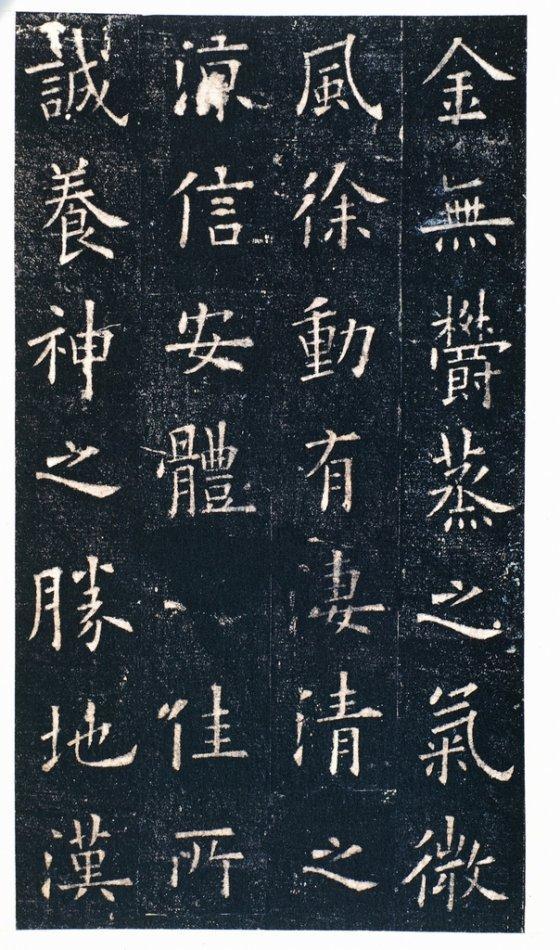 金無欝蒸之氣微
風徐動有淒清之
涼信安體佳所
誠養神之勝地漢